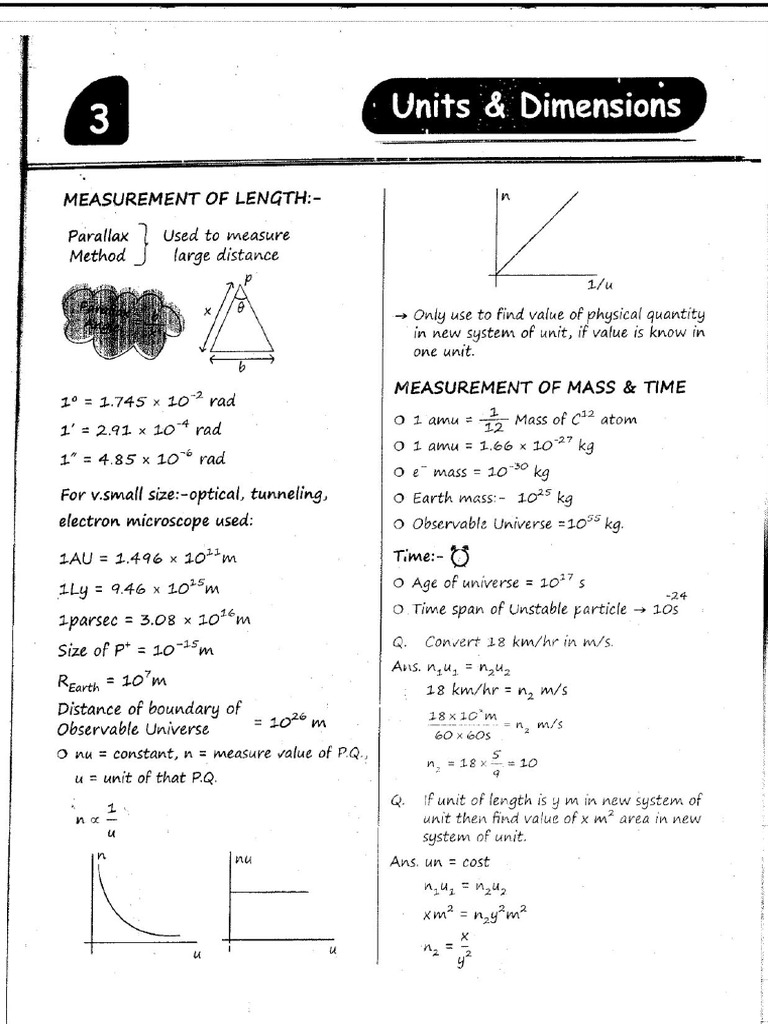 3
Units & Dimensions
MEASUREMENT OF LENGTH:-
Parallax
Method } Used to measure
large distance
Parallax
Angle
p
x
θ
b
1° = 1.745 × 10⁻² rad
1′ = 2.91 × 10⁻⁴ rad
1″ = 4.85 × 10⁻⁶ rad
For v.small size:-optical, tunneling,
electron microscope used:
1AU = 1.496 × 10¹¹m
1Ly = 9.46 × 10¹⁵m
1parsec = 3.08 × 10¹⁶m
Size of P⁺ = 10⁻¹⁵m
R_Earth = 10⁷m
Distance of boundary of
Observable Universe = 10²⁶ m
O nu = constant, n = measure value of P.Q.,
u = unit of that P.Q.
n ∝ 1/u
n
u
nu
u
n
1/u
→ Only use to find value of physical quantity
in new system of unit, if value is know in
one unit.
MEASUREMENT OF MASS & TIME
O 1 amu = 1/12 Mass of C¹² atom
O 1 amu = 1.66 × 10⁻²⁷ kg
O e⁻ mass = 10⁻³⁰ kg
O Earth mass:- 10²⁵ kg
O Observable Universe =10⁵⁵ kg.
Time:-
O Age of universe = 10¹⁷ s
O Time span of Unstable particle → 10s⁻²⁴
Q. Convert 18 km/hr in m/s.
Ans. n₁u₁ = n₂u₂
18 km/hr = n₂ m/s
18 × 10³m / 60 × 60s = n₂ m/s
n₂ = 18 × 5/9 = 10
Q. If unit of length is y m in new system of
unit then find value of x m² area in new
system of unit.
Ans. un = cost
n₁u₁ = n₂u₂
xm² = n₂y²m²
n₂ = x/y²